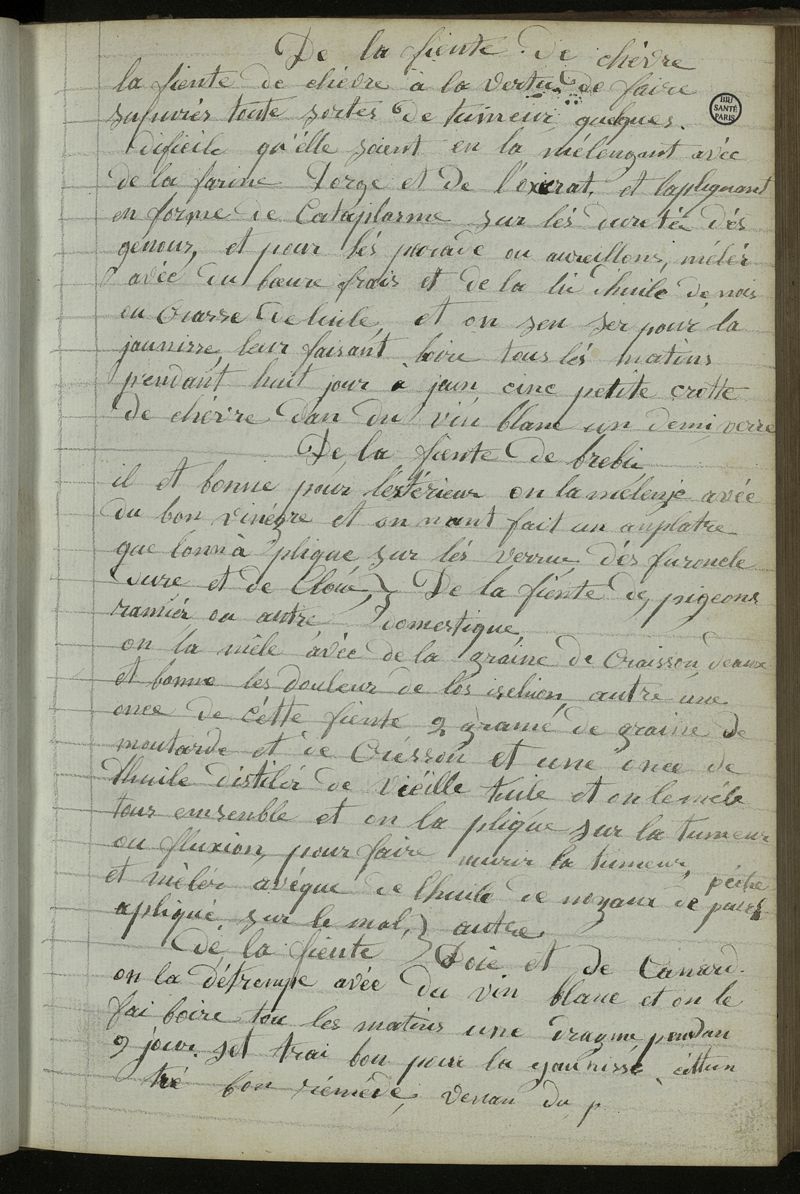 De la fiente de chévre
la fiente de chévre à la vertu de faire
supurés toute sortes de tumeur quelques.
dificile qu'élle soient en la mélengant avéc
de la farine Dorge et de l'oxicrat, et laplignant
en forme de Cataplasme sur lés duretée dés
genoux, et pour lés ou aureillons, mélér
avéc du beure frais et de la lu dhuile de nois
ou Crasse de huile, et on sen ser pour la
jaunisse, leur faisant boire tous lés matins
pendant huit jour à jeun cinc petite crotte
de chévre dan du vin blanc un demi verre
De la fiente de brebie
il et bonne pour léxtérieur on la mélenje avéc
du bon vinégre et on nant fait un anplatre
que lonn à plique sur lés verrue dés furoncle
dure et de Cloue,} De la fiénte de pigeons
ramiér ou autre domestique,
on la mêle avéc de la graine de Craisson deaux
et bonne les douleur de los ischion, autre une
once de cétte fiente 2 grame de graine de
moutarde et de Crésson et une once de
dhuile distilér de viéille tuile et on le méle
tous ensenble et on la plique sur la tumeur
ou fluxion, pour faire murir la tumeur,
et mélér avéque de lhuile de noyaux de péche
apliqué sur le mal,} autre.
De la fiente Doie et de Canard.
on la détrempe avéc du vin blanc et on le
fai boire tou les matins une dragme pendan
9 jour. set trai bon pour la gaunisse céttun
tré bon rémédé, venan du p
BIU
SANTÉ
PARIS